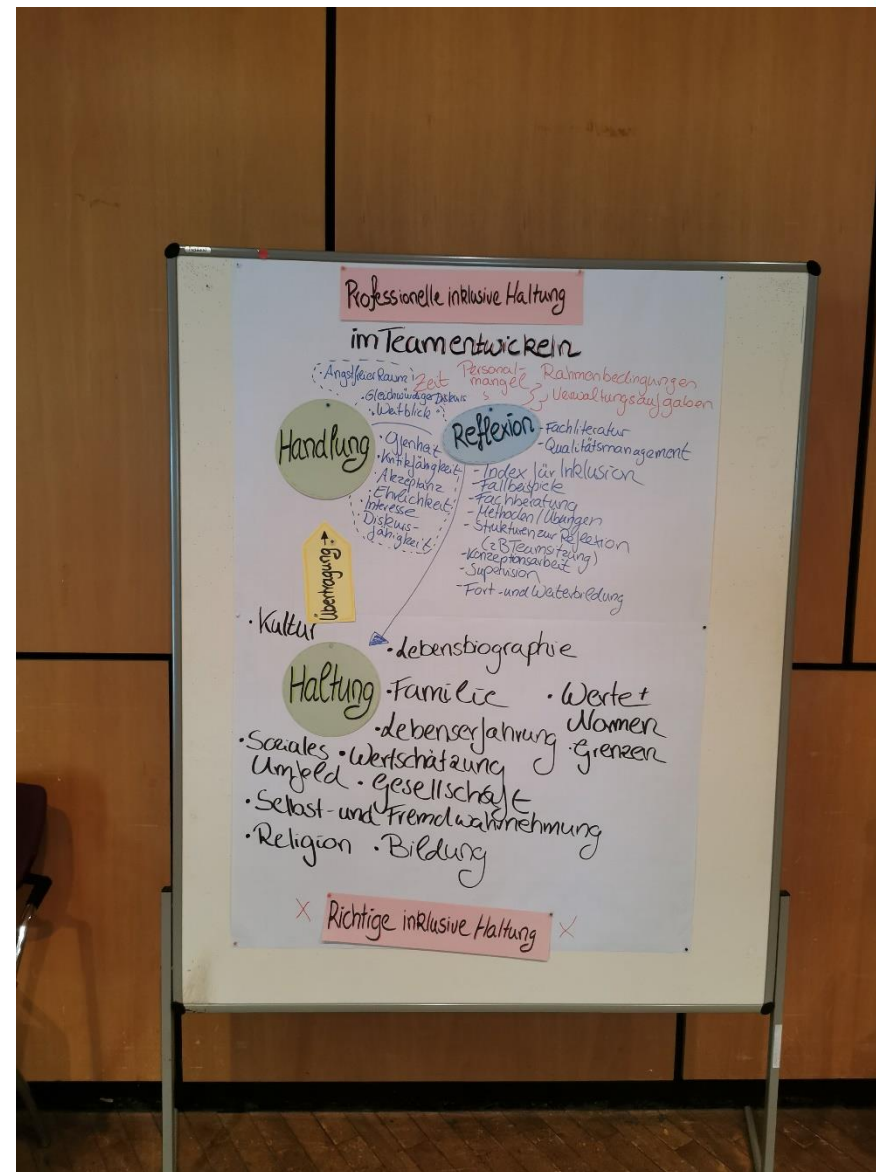 Professionelle inklusive Haltung
im Team entwickeln
· Angstfreier Raum
· Gleichwürdiger Diskurs
· Weitblick
Zeit
Personal-
mangel
Rahmenbedingungen
Verwaltungsaufgaben
Handlung
Reflexion
- Fachliteratur
- Qualitätsmanagement
· Offenheit
· Kritikfähigkeit
· Akzeptanz
· Ehrlichkeit
· Interesse
· Diskurs-
fähigkeit
- Index für Inklusion
- Fallbeispiele
- Fachberatung
- Methoden/Übungen
- Strukturen zur Reflexion
(z B Teamsitzung)
- Konzeptionsarbeit
- Supervision
- Fort- und Weiterbildung
Übertragung →
· Kultur
Haltung
· Lebensbiographie
· Familie
· Werte +
Normen
· Lebenserfahrung
· Grenzen
· Soziales
Umfeld
· Wertschätzung
· Gesellschaft
· Selbst- und Fremdwahrnehmung
· Religion · Bildung
X Richtige inklusive Haltung X